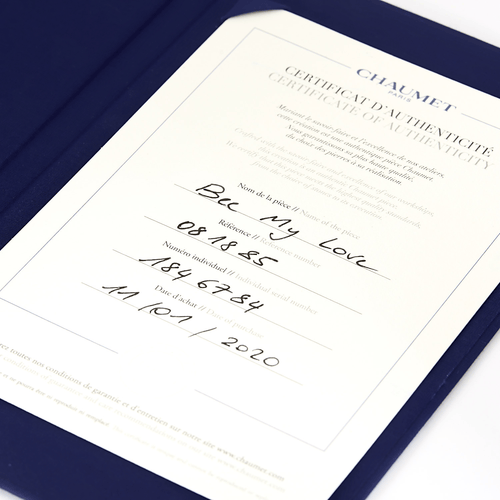 CHAUMET
PARIS
CERTIFICAT D'AUTHENTICITÉ
CERTIFICATE OF AUTHENTICITY
Mariant le savoir-faire et l'excellence de nos ateliers,
cette création est une authentique pièce Chaumet
Nous garantissons sa plus haute qualité,
du choix des pierres à sa réalisation.
Nom de la pièce // Name of the piece
Bee My Love
Référence // Reference number
081885
Numéro individuel // Individual serial number
1846784
Date d'achat // Date of purchase
11/01/2020
toutes nos conditions de garantie et d'entretien sur notre site www.chaumet.com